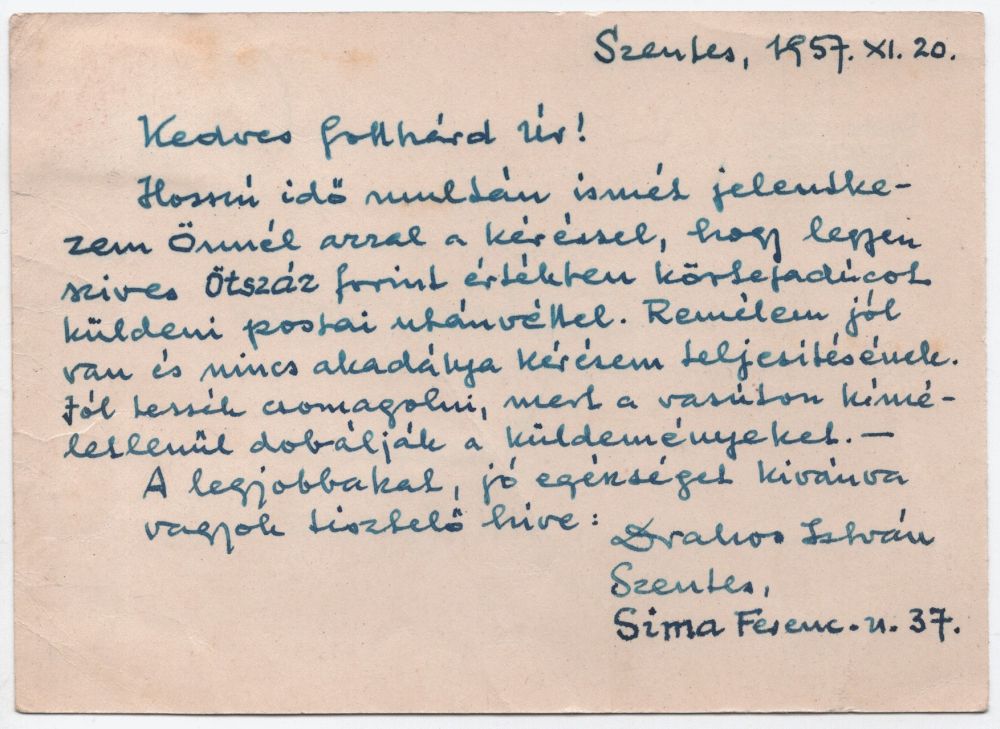 Szentes, 1957. XI. 20.
Kedves Gotthárd Úr!
Hosszú idő multán ismét jelentke-
zem Önnél azzal a kéréssel, hogy legyen
szives Ötszáz forint értékben körtefadúcot
küldeni postai utánvéttel. Remélem jól
van és nincs akadálya kérésem teljesitésének.
Jól tessék csomagolni, mert a vasúton kimé-
letlenül dobálják a küldeményeket. —
A legjobbakat, jó egészséget kivánva
vagyok tisztelő hive:
Drahos István
Szentes,
Sima Ferenc. u. 37.